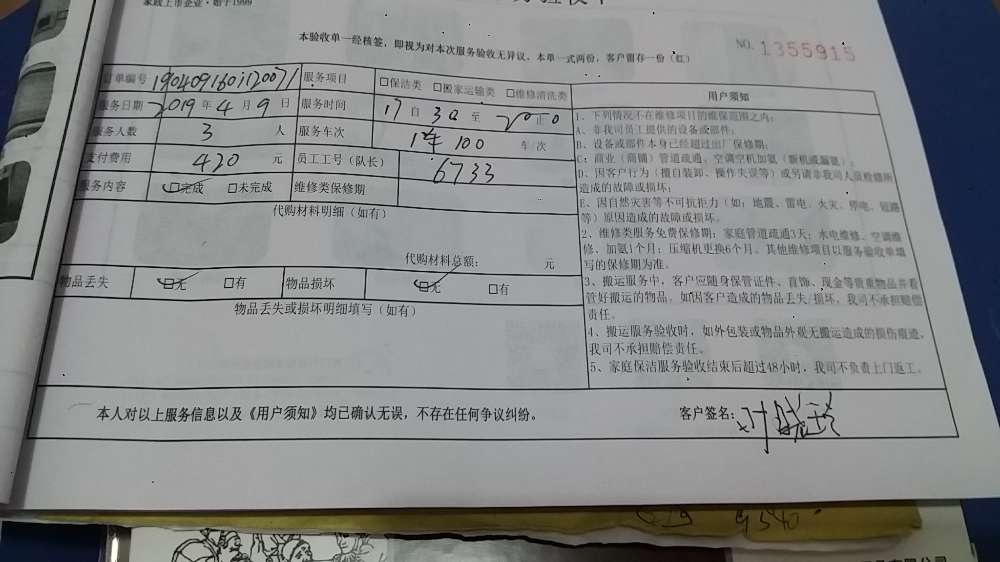 家政上市企业·始于1999
本验收单一经核签，即视为对本次服务验收无异议。本单一式两份，客户留存一份（红）
NO. 1355915
订单编号 1904091601120071 服务项目 □保洁类 □搬家运输类 □维修清洗类
服务日期 2019 年 4 月 9 日 服务时间 17 自 30 至
服务人数 3 人 服务车次 100 车/次
支付费用 420 元 员工工号（队长） 6733
服务内容 □完成 □未完成 维修类保修期
代购材料明细（如有）
代购材料总额： 元
物品丢失 □无 □有 物品损坏 □无 □有
物品丢失或损坏明细填写（如有）
用户须知
1、下列情况不在维修项目的维保范围之内：
A、非我司员工提供的设备或部件；
B、设备或部件本身已经超过出厂保修期；
C：商业（商铺）管道疏通、空调空机加氨（新机或漏氨）；
D、因客户行为（擅自装卸、操作失误等）或另请非我司人员检修所
造成的故障或损坏；
E、因自然灾害等不可抗拒力（如：地震、雷电、火灾、停电、短路
等）原因造成的故障或损坏。
2、维修类服务免费保修期：家庭管道疏通3天；水电维修、空调维
修、加氨1个月；压缩机更换6个月。其他维修项目以服务验收单填
写的保修期为准。
3、搬运服务中，客户应随身保管证件、首饰、现金等贵重物品并看
管好搬运的物品。如因客户造成的物品丢失/损坏，我司不承担赔偿
责任。
4、搬运服务验收时，如外包装或物品外观无搬运造成的损伤痕迹，
我司不承担赔偿责任。
5、家庭保洁服务验收结束后超过48小时，我司不负责上门返工。
本人对以上服务信息以及《用户须知》均已确认无误，不存在任何争议纠纷。
客户签名：